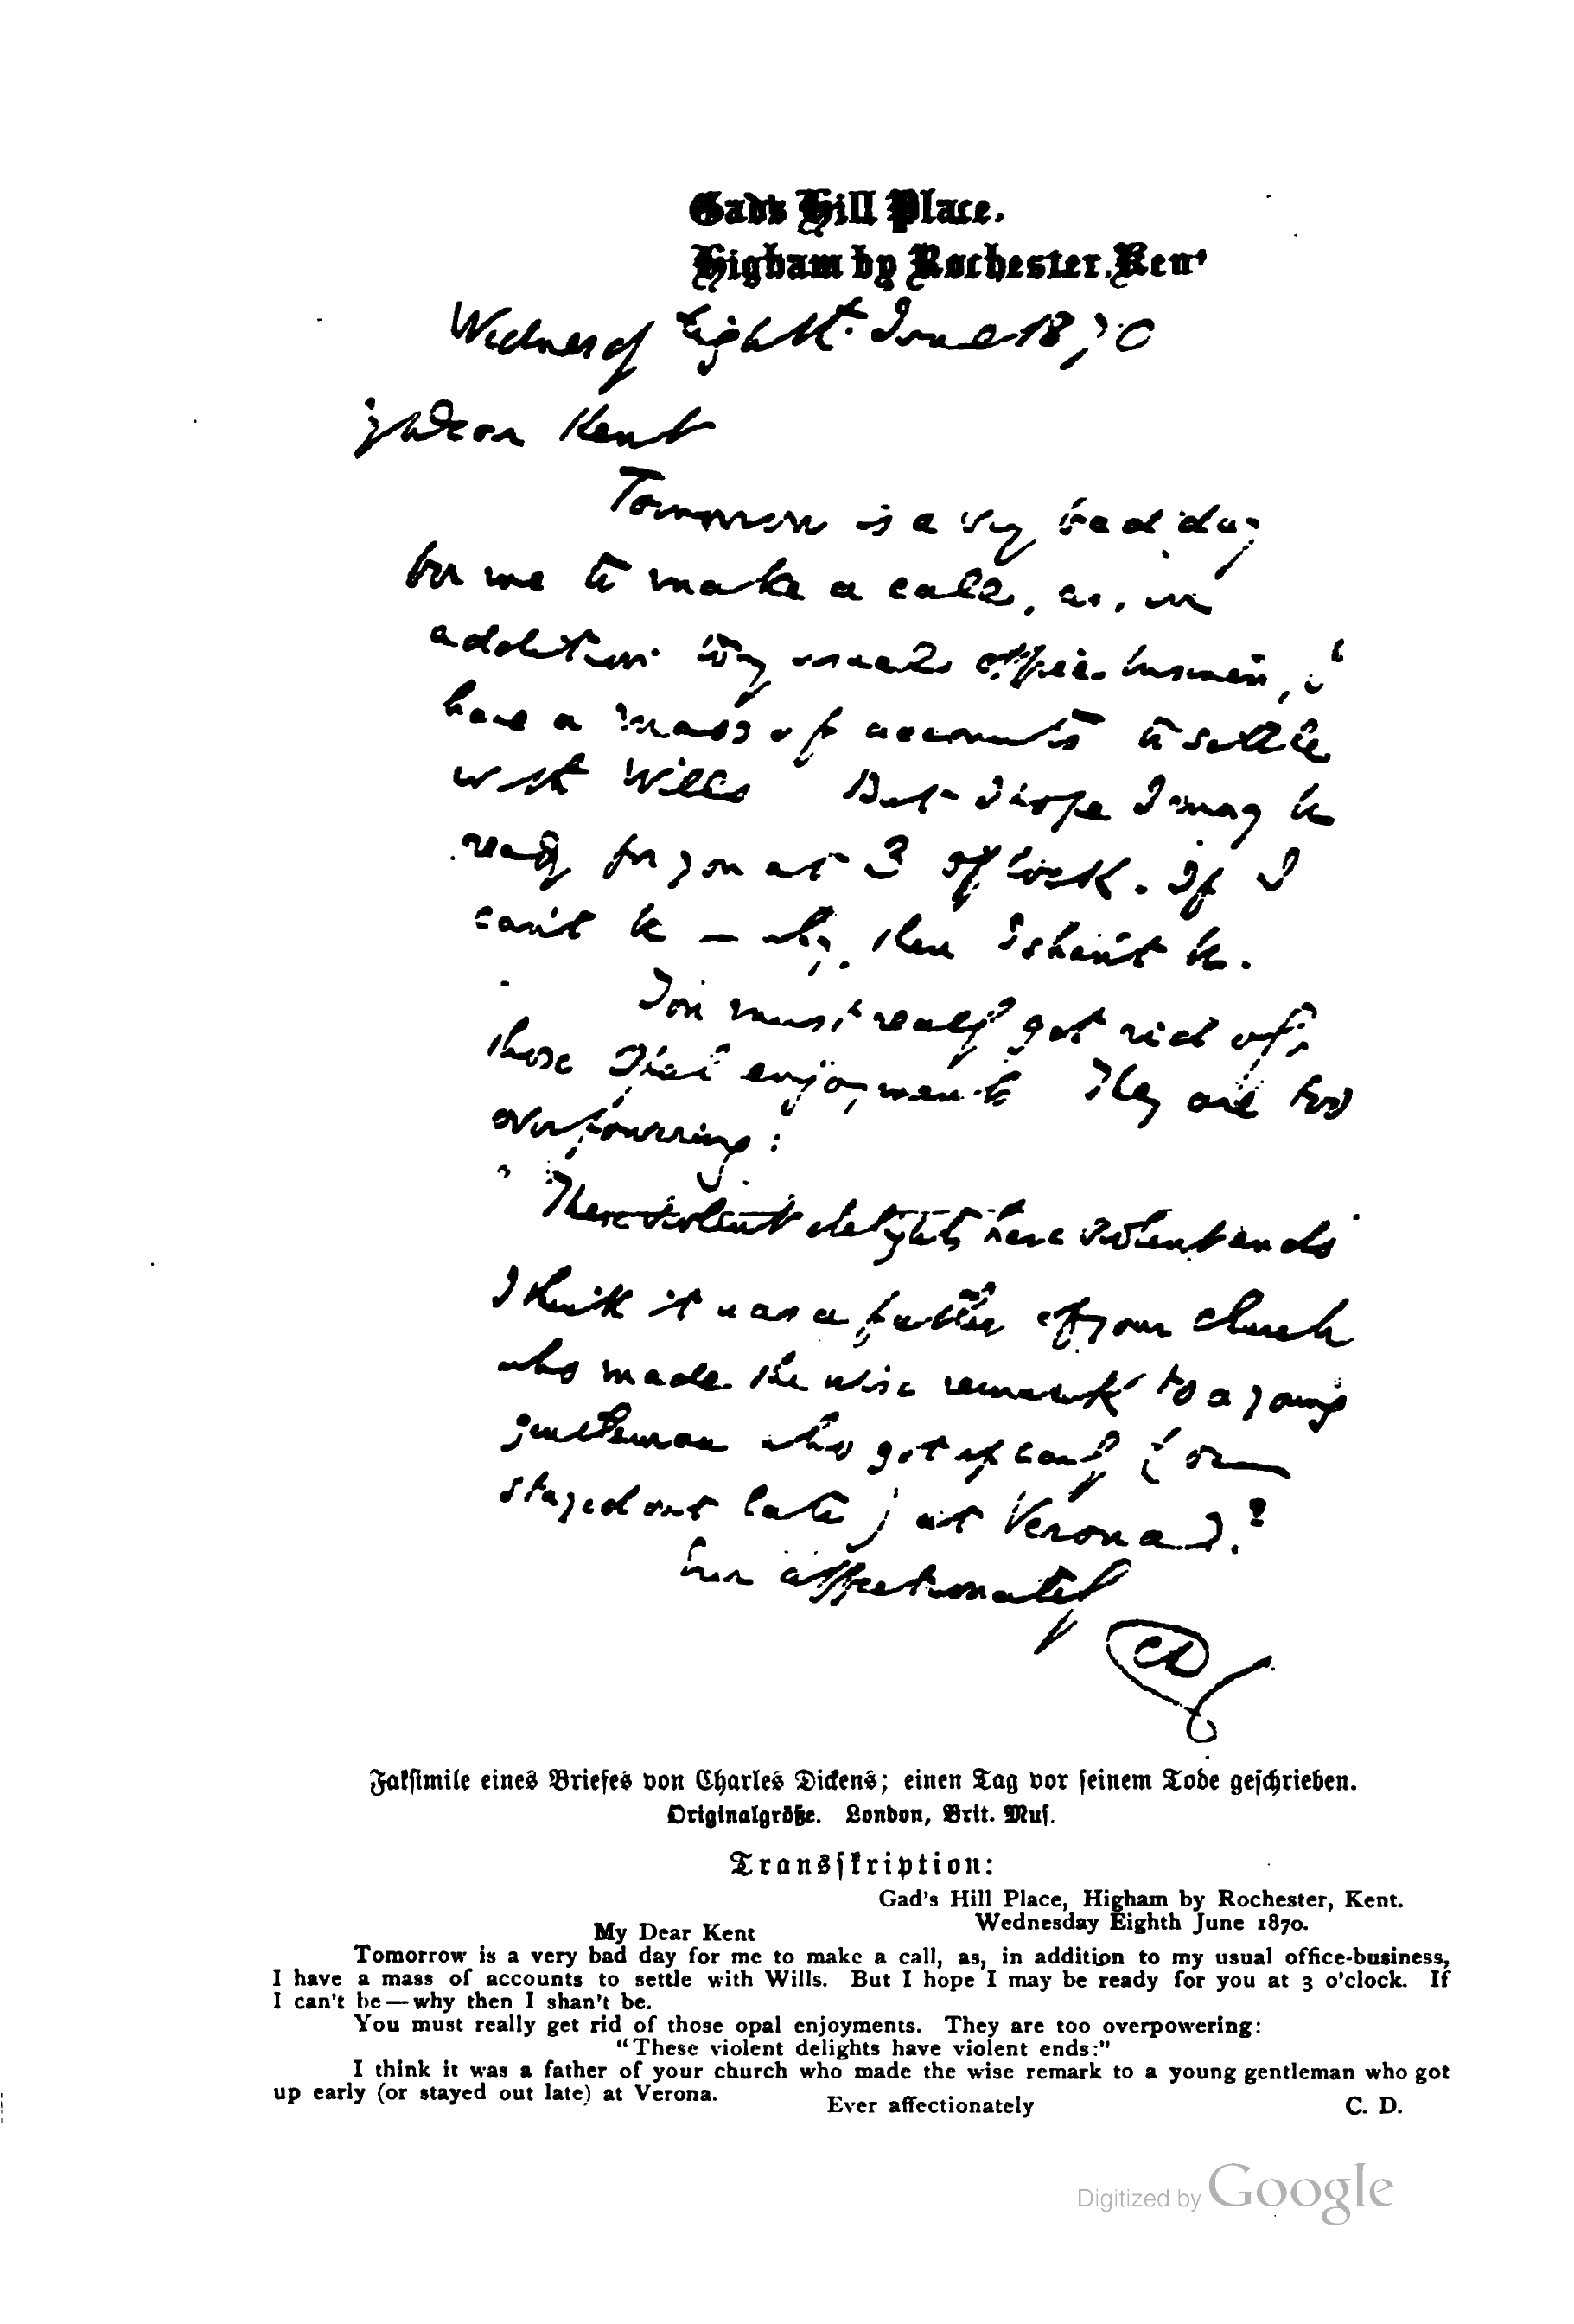 Gad's Hill Place.
Higham by Rochester. Kent
Wednesday Eighth June 1870
My Dear Kent
Tomorrow is a very bad day
for me to make a call, as, in
addition to my usual office business, I
have a mass of accounts to settle
with Wills But I hope I may be
ready for you at 3 o'clock. If I
can't be – why, then I shan't be.
You must really get rid of
those Opal enjoyments They are too
overpowering:
"These violent delights have violent ends"
I think it was a father of your church
who made the wise remark to a young
gentleman who got up early (or
stayed out late) at Verona?
Ever affectionately
CD
Fakſimile eines Briefes von Charles Dickens; einen Tag vor ſeinem Tode geſchrieben.
Originalgröße. London, Brit. Muſ.
Transſkription:
Gad's Hill Place, Higham by Rochester, Kent.
Wednesday Eighth June 1870.
My Dear Kent
Tomorrow is a very bad day for me to make a call, as, in addition to my usual office-business,
I have a mass of accounts to settle with Wills. But I hope I may be ready for you at 3 o'clock. If
I can't be—why then I shan't be.
You must really get rid of those opal enjoyments. They are too overpowering:
"These violent delights have violent ends:"
I think it was a father of your church who made the wise remark to a young gentleman who got
up early (or stayed out late) at Verona.
Ever affectionately C. D.
Digitized by Google